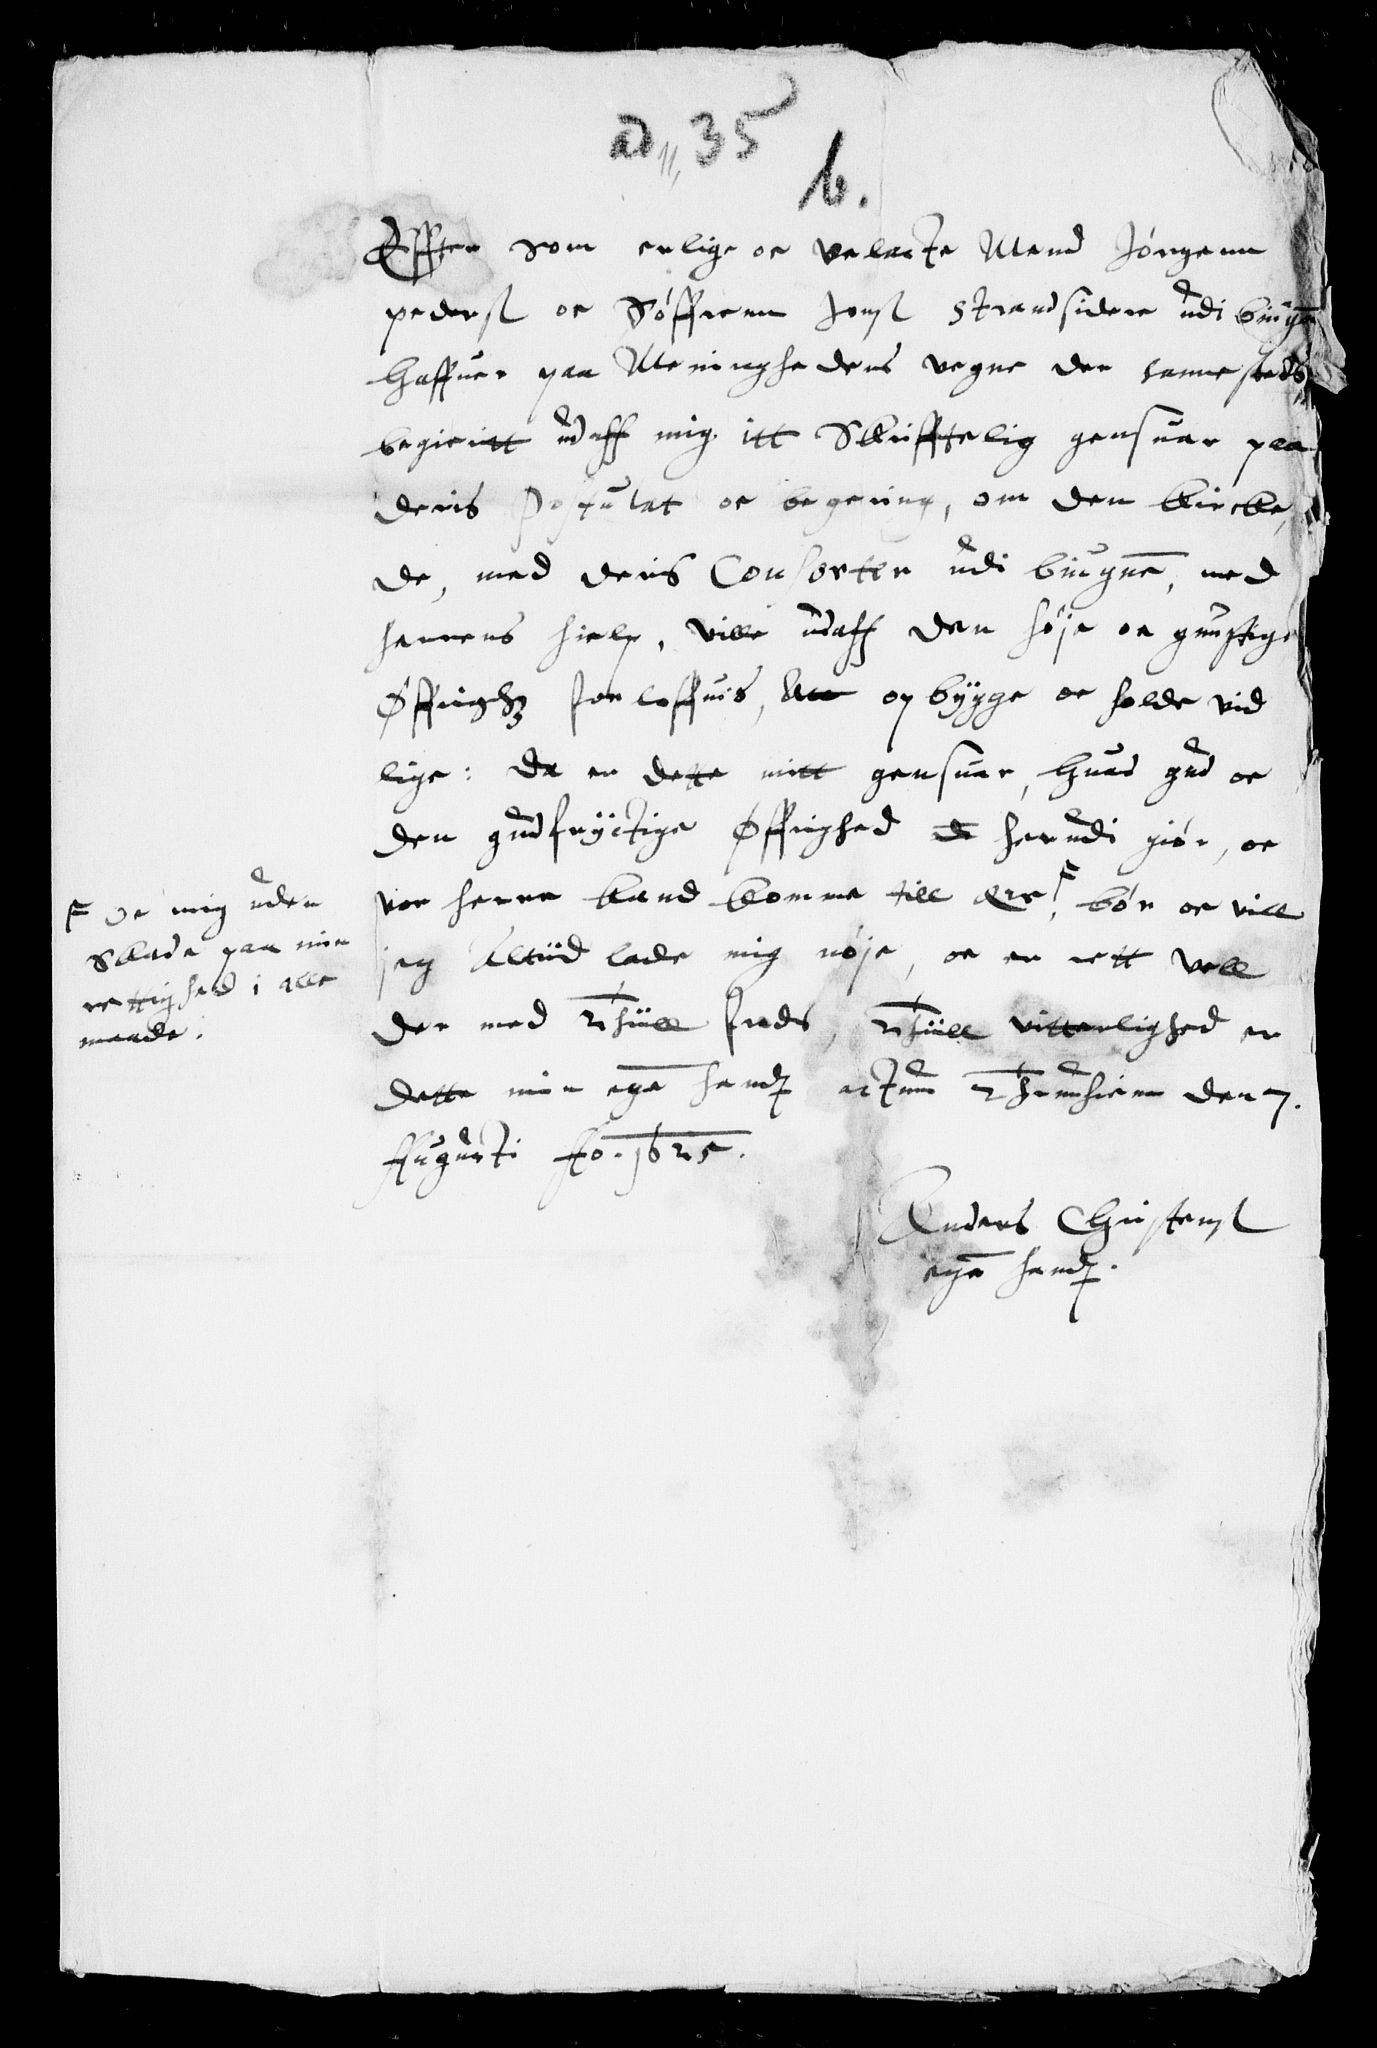 ad 35
b.
Effter som erlige oc velacte Mend Jörgenn
pedersß oc Söffrenn Jonsß strandsidere udi biugn
haffuer paa Meninghedens vegne der sammesteds
begierett udaff mig itt Skrifftelig gensuar paa
deris Postulat oc begering, om den kircke,
de, med deris Consorter udi biugnē, med
herrens hielp, ville udaff den høje oc gunstige
Øffrighz forloffuis, Att opbygge oc holde vid
lige: da er dette mitt gensuar, huad gud oc
den gudfryctige Øffrighed herudi giör, oc
vor herre kand komme till ære, F bör oc vill
jeg Altiid lade mig nøje, oc er rett vell
der med thiill freds, thiill vitterlighed er
dette min egē hand actum Thrundhiem den 7.
Augusti Ao. 1625.
Anders Christensß
egē hand.
F Oc mig uden
Skade paa min
rettighed i alle
maade.